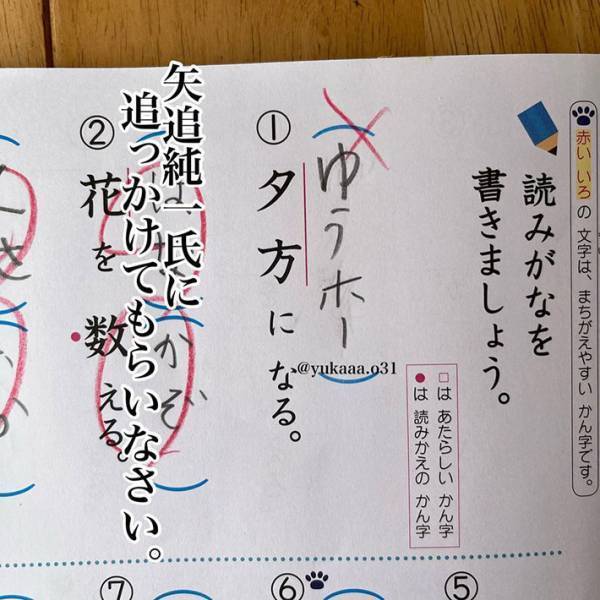 赤い いろの文字は、まちがえやすい かん字です。
読みがなを
書きましょう。
□は あたらしい かん字
●は 読みかえの かん字
① 夕方になる。
ゆうホー
② 花を数える。
かぞ
矢追純一氏に
追っかけてもらいなさい。
@yukaaa.o31
⑤
⑥
⑦